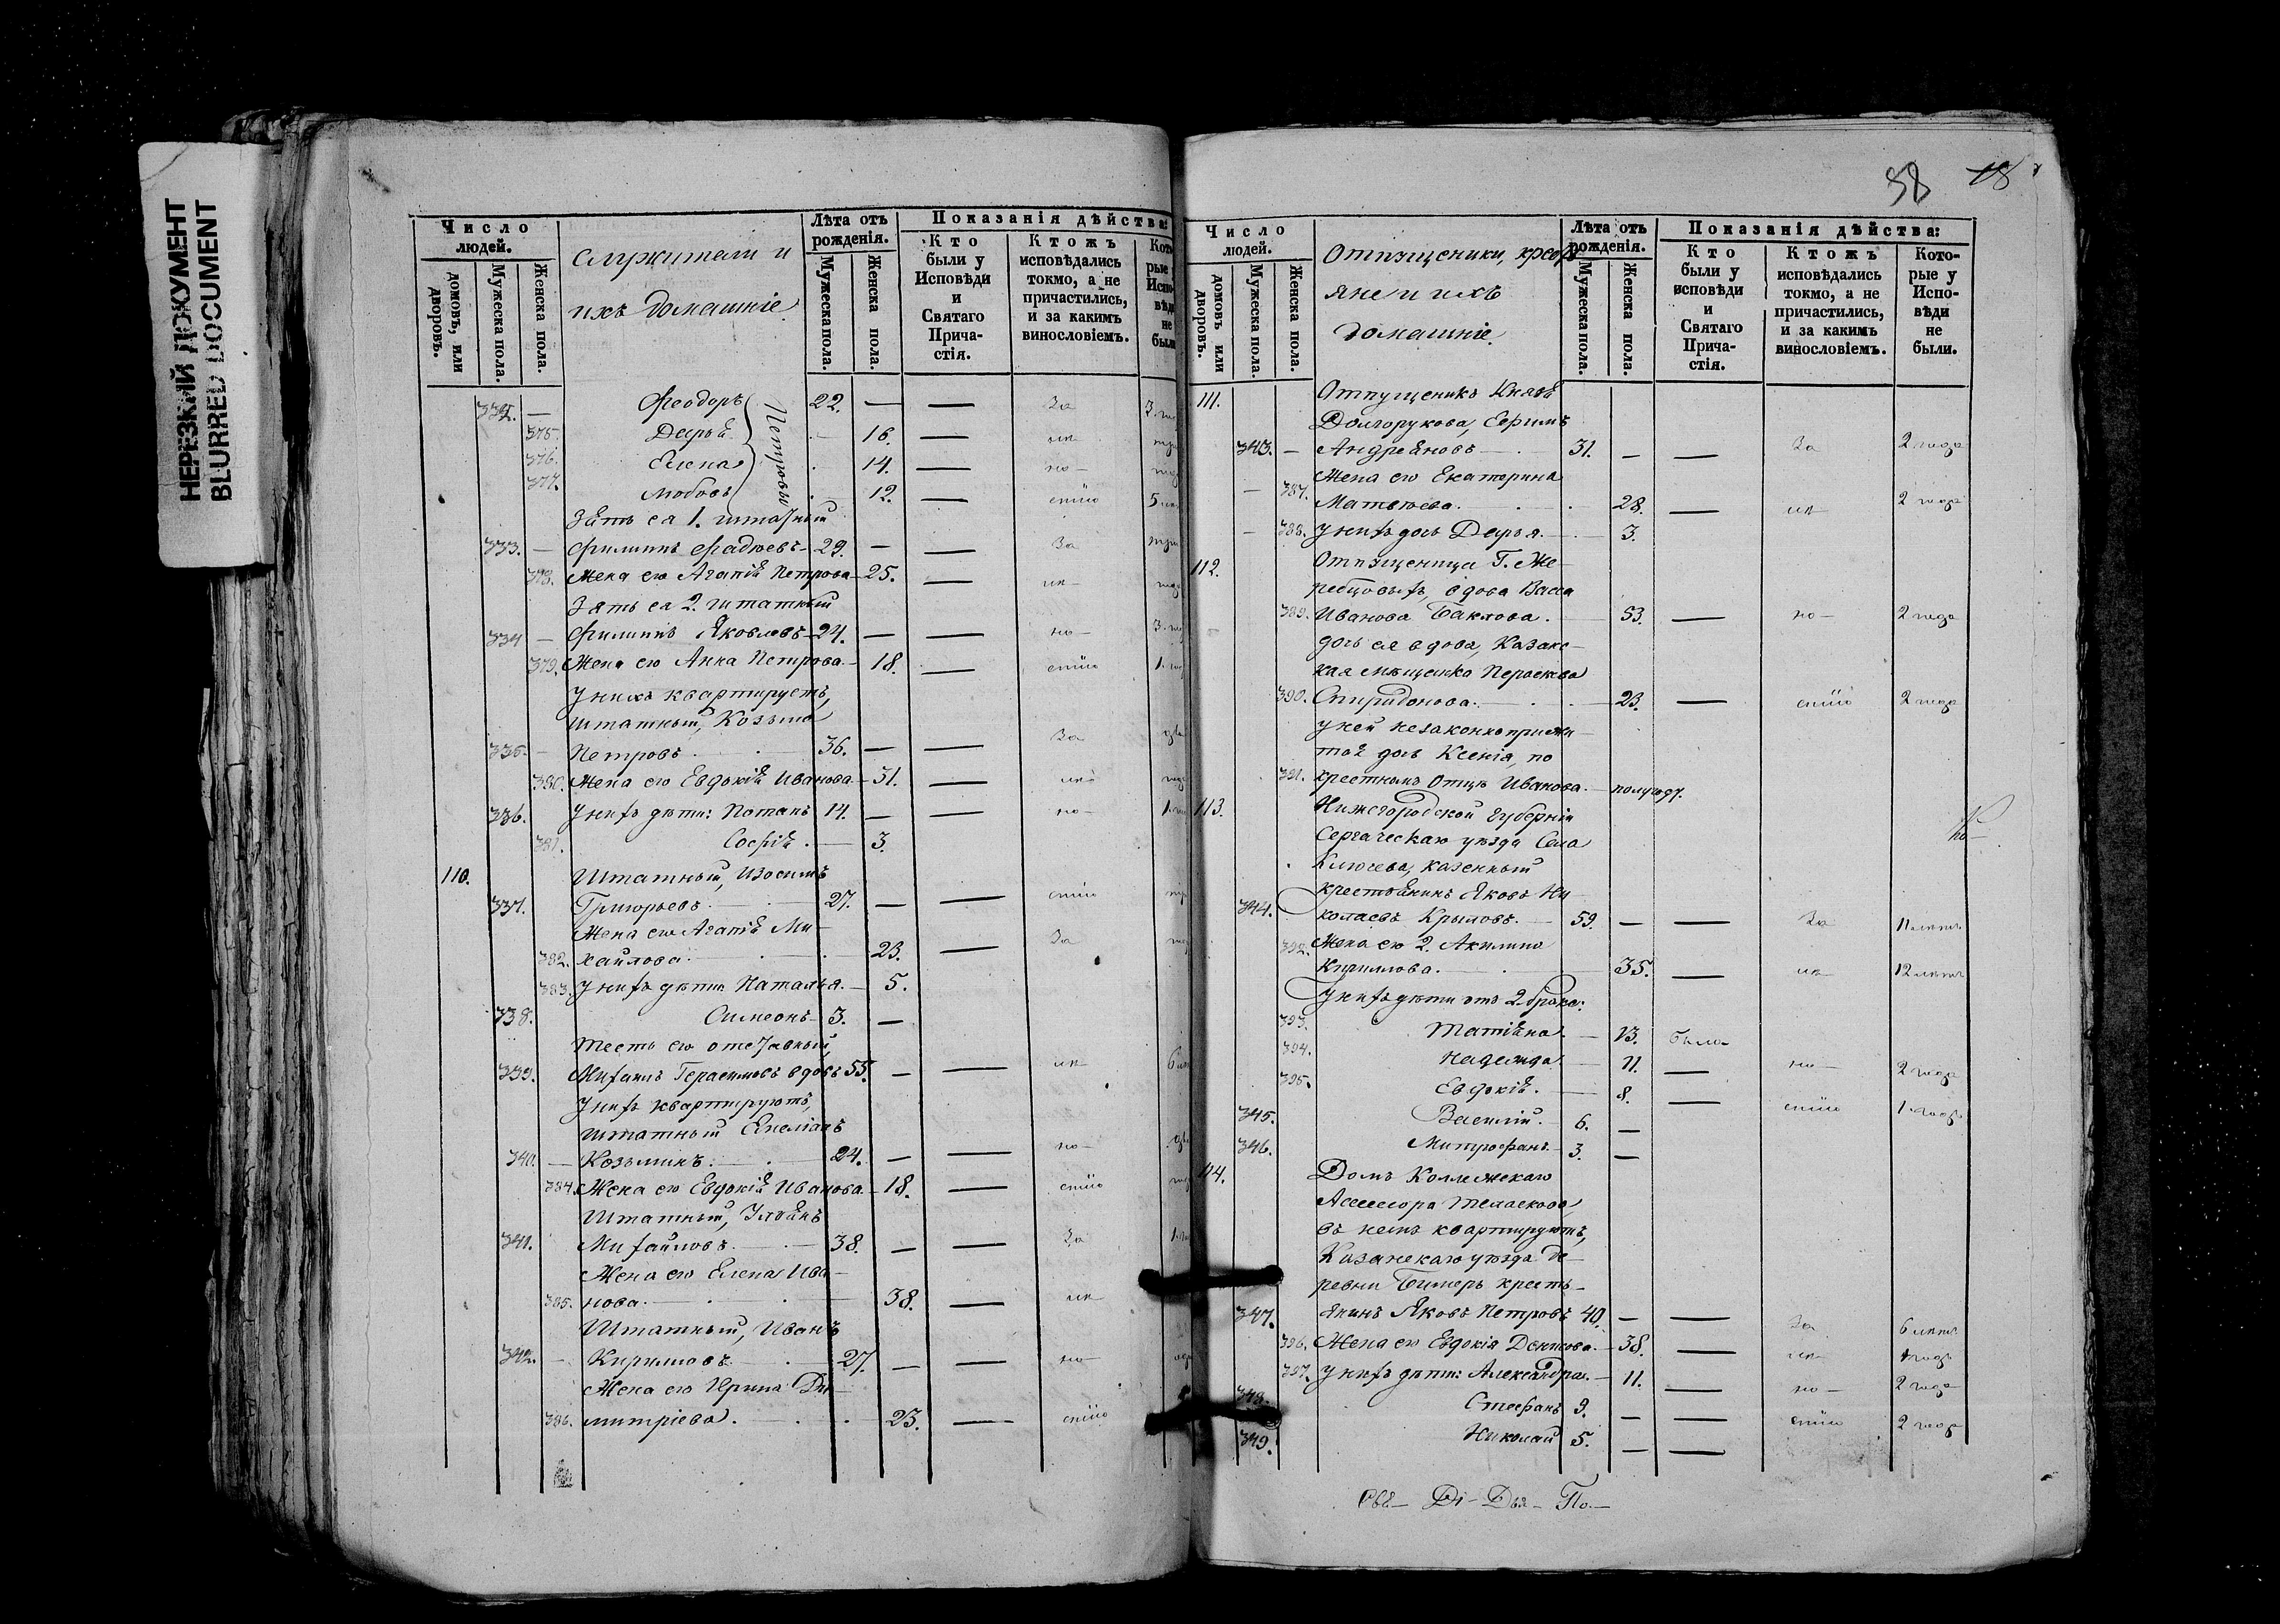 НЕРЕЗКИЙ ДОКУМЕНТ
BLURRED DOCUMENT
Число людей.
домовъ, или дворовъ.
Мужеска пола.
Женска пола.
служители и
ихъ домашніе
Лѣта отъ рожденія.
Мужеска пола.
Женска пола.
Показанія дѣйства:
Кто были у Исповѣди и Святаго Прича-стія.
Ктожъ исповѣдались токмо, а не причастились, и за какимъ винословіемъ.
Кото рые Испо вѣди не были
Ѳеодоръ 22. — — За
375. Дарья 16. —
376. Елена 14. — но-
377. Любовь 12. — стію
Петровы
Зять ея 1. штатный
333. — Филиппъ Фадѣевъ 29. — — За
378. Жена его Агапія Петрова 25. —
Зять ея 2. штатный
334 — Филиппъ Яковлевъ 24. — — но-
379. Жена его Анна Петрова 18. — стію
У нихъ квартируетъ,
штатный, Козьма
335. — Петровъ 36. — — За
380. Жена его Евдокія Иванова 31. —
336. У нихъ дѣти: Потапъ 14. — — но-
381. Софія 3.
110. Штатный, Изосимъ
337. Григорьевъ 27. — — стію
Жена его Агапія Ми-
382. хайлова 23. — За
383. У нихъ дѣти Наталья 5.
338. Симеонъ 3. —
тесть его отставный,
339. Михаилъ Герасимовъ вдовъ 55. — —
У нихъ квартируютъ,
штатный Емеліанъ
340. — Козьминъ. 24. — — но-
384. Жена его Евдокія Иванова 18. — стію
Штатный, Уліанъ
341. Михайловъ 38. — — За
Жена его Елена Ива-
385. нова 38. —
Штатный, Иванъ
342. — Кириловъ 27. — — но-
Жена его Ирина Ди-
386. митріева. 23. — стію
58 18
Число людей.
домовъ или дворовъ.
Мужеска пола.
Женска пола.
Отпущеники, кресть
яне и ихъ
домашніе.
Лѣта отъ рожденія.
Мужеска пола.
Женска пола.
Показанія дѣйства:
Кто были у исповѣди и Святаго Прича-стія.
Ктожъ исповѣдались токмо, а не причастились, и за какимъ винословіемъ.
Кото-рые у Испо-вѣди не были.
111. Отпущеникъ Князя
Долгорукова, Ефимъ
343. — Андреяновъ 31. — — За 2 года
Жена его Екатерина
387. Матвѣева. 28. — 2 года
388. У нихъ дочь Дарья. 3.
112. Отпущеница Г. Же-
ребцовыхъ, вдова Васса
389. Иванова Баклова. 53. — но- 2 года
дочь ея вдова, Казанс-
кая мѣщанка Параскева
390. Спиридонова. 23. — стію 2 года
у ней незаконноприжи-
тая дочь Ксенія, по
391. крестномъ Отцѣ Иванова. — полугоду.
113. Нижегородской губерніи
Сергаческаго уѣзда Села
Ключева, казенный
крестьянинъ Яковъ Ни-
344. колаевъ Крыловъ. 59. — — За 11 лѣтъ
392. Жена его 2. Акилина
Кирилова. 35. — 12 лѣтъ
У нихъ дѣти отъ 2. брака:
393. Татіяна 13. была
394. Надежда 11. — но- 2 года
395. Евдокія. 8. — стію 1 годъ
345. Василій. 6. —
346. Митрофанъ 3. —
114. Домъ Коллежскаго
Ассесора
въ немъ квартируютъ,
Казанскаго уѣзда де-
ревни Бимеръ кресть-
347. янинъ Яковъ Петровъ 40. — — За 6 лѣтъ
396. Жена его Евдокія Денисова. 38. — годъ
397. У нихъ дѣти: Александра 11. — но- 2 года
348. Стефанъ 9. — — стію 2 года
349. Николай 5. — —